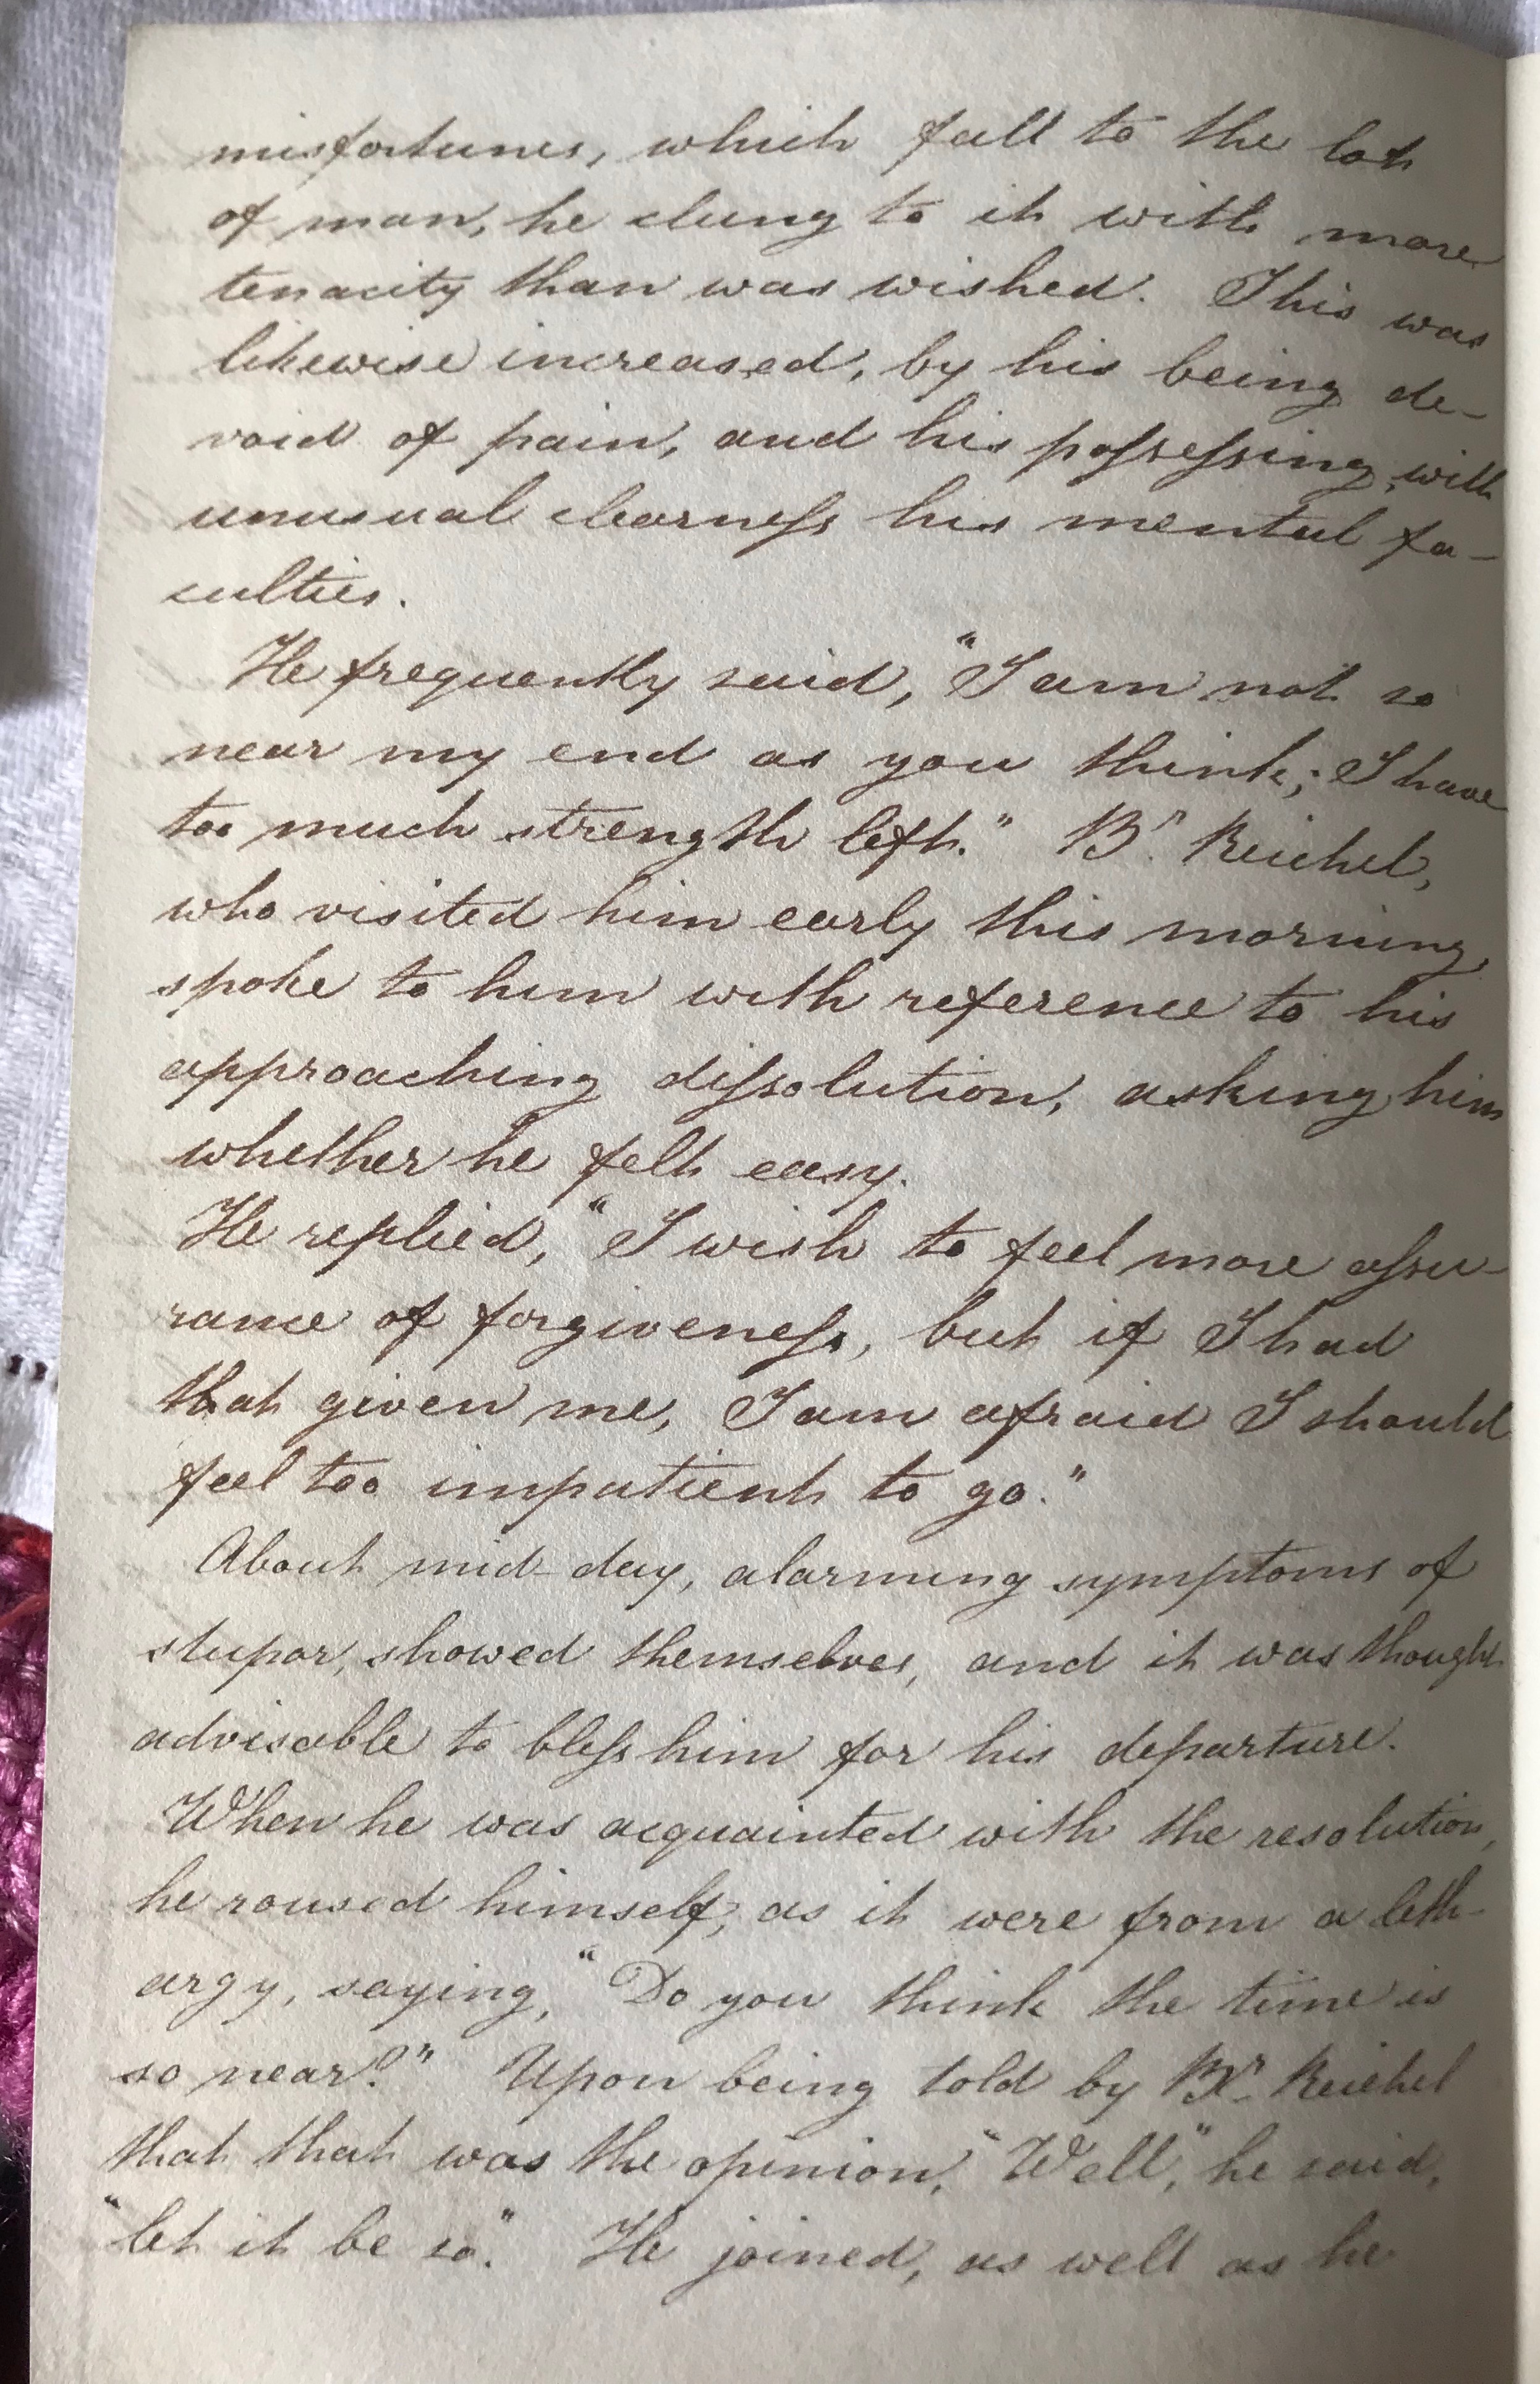 misfortunes, which fall to the lot
of man, he clung to it with more
tenacity than was wished. This was
likewise increased, by his being de-
void of pain, and his poſseſsing, with
unusual clearneſs his mental fa-
culties.
He frequently said, "I am not so
near my end as you think; I have
too much strength left." Br. Reichel,
who visited him early this morning,
spoke to him with reference to his
approaching diſsolution, asking him
whether he felt easy.
He replied, "I wish to feel more aſsu-
rance of forgiveneſs, but if I had
that given me, I am afraid I should
feel too impatient to go."
About mid-day, alarming symptoms of
stupor, showed themselves, and it was thought
advisable to bleſs him for his departure.
When he was acquainted with the resolution,
he roused himself, as it were from a leth-
argy, saying, "Do you think the time is
so near?" Upon being told by Br. Reichel
that that was the opinion, "Well," he said,
"let it be so." He joined, as well as he